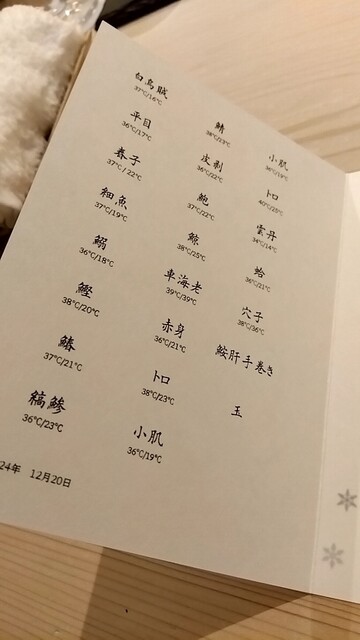 白烏賊
37℃/16℃
平目
36℃/17℃
春子
37℃/22℃
細魚
37℃/19℃
鰯
36℃/18℃
鰹
38℃/20℃
鰆
37℃/21℃
縞鯵
36℃/23℃
鯖
皮剥
36℃/22℃
鮑
37℃/22℃
鯨
38℃/25℃
車海老
39℃/39℃
赤身
36℃/21℃
トロ
38℃/23℃
小肌
36℃/19℃
小肌
36℃/19℃
トロ
雲丹
34℃/14℃
蛤
36℃/21℃
穴子
38℃/36℃
鮟肝手巻き
玉
24年 12月20日